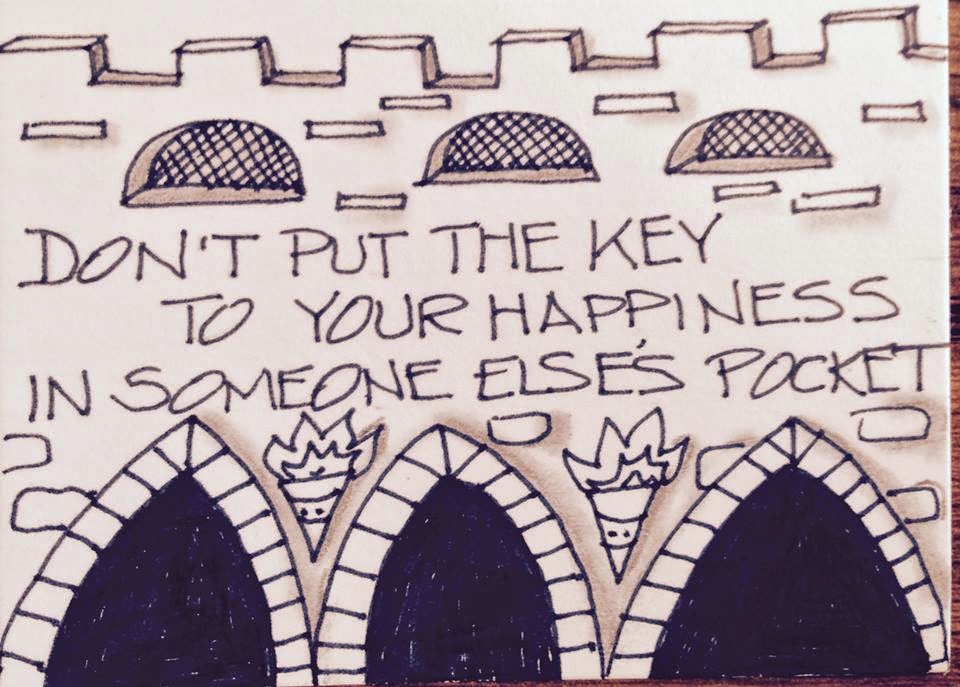 DON'T PUT THE KEY
TO YOUR HAPPINESS
IN SOMEONE ELSE'S POCKET